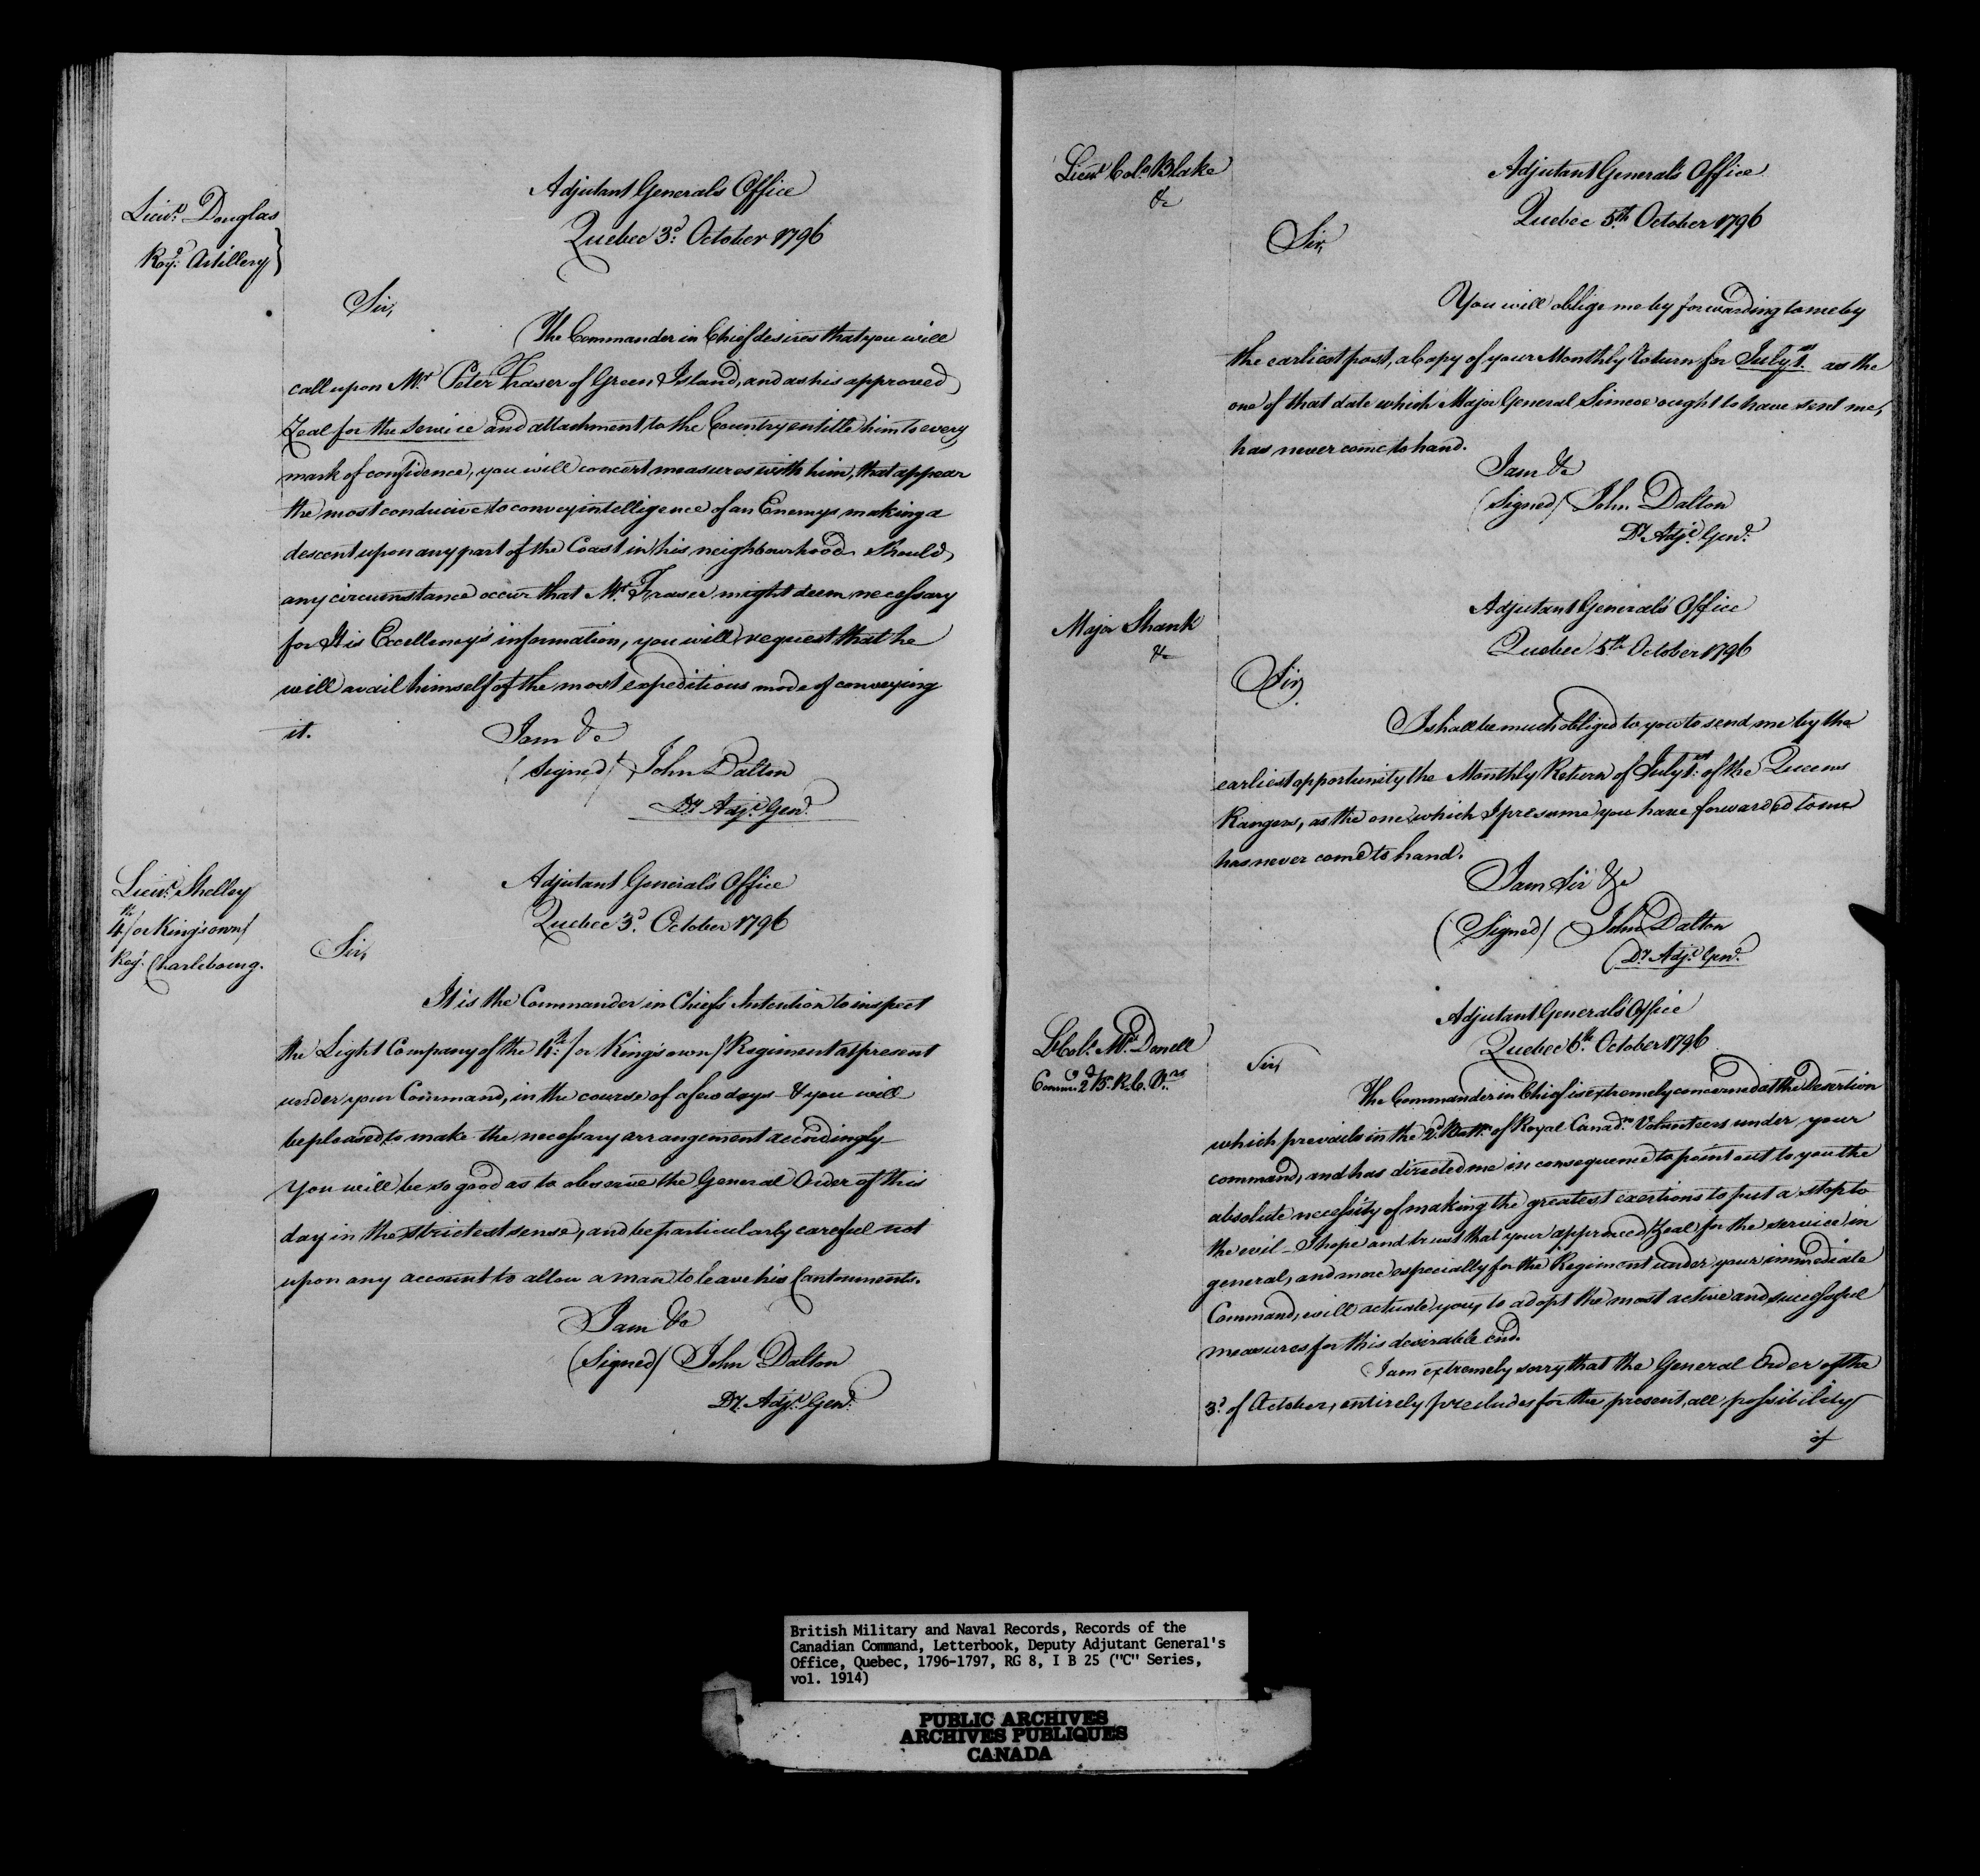 Lieut. Douglas
Roy. Artillery
Adjutant Generals Office
Quebec 3d. October 1796
Sir,
The Commander in Chief desires that you will
call upon Mr. Peter Fraser of Green Island, and as his approved
Zeal for the Service and attachment to the Country entitle him to every
mark of confidence, you will concert measures with him, that appear
the most conducive to convey intelligence of an Enemys making a
descent upon any part of the Coast in his neighbourhood Should
any circumstance occur that Mr. Fraser might deem necessary
for His Excellency's information, you will request that he
will avail himself of the most expeditious mode of conveying
it.
I am &c
(Signed) John Dalton
Dy. Adjt. Genl.
Lieut. Shelley
4th/or King's own/
Regt. Charlebourg.
Adjutant General's Office
Quebec 3d. October 1796
Sir,
It is the Commander in Chief's Intention to inspect
the Light Company of the 4th./or King's own/Regiment at present
under your Command, in the course of a few days & you will
be pleased to make the necessary arrangement accordingly
You will be so good as to observe the General Order of this
day in the strictest sense, and be particularly careful not
upon any account to allow a man to leave his Cantonments.
I am &c
(Signed) John Dalton
Dy. Adjt. Genl.
Lieut. Col. Blake
&c
Adjutant General's Office
Quebec 5th. October 1796
Sir,
You will oblige me by forwarding to me by
the earliest post, a Copy of your Monthly Return for July 1st. as the
one of that date which Major General Simcoe ought to have sent me,
has never come to hand.
I am &c
(Signed) John Dalton
Dy. Adjt. Genl.
Major Shank
&c
Adjutant General's Office
Quebec 5th October 1796
Sir,
I shall be much obliged to you to send me by the
earliest opportunity the Monthly Return of July 1st. of the Queens
Rangers, as the one which I presume you have forwarded to me
has never come to hand.
I am Sir &c
(Signed) John Dalton
Dy. Adjt. Genl.
Lt. Col. Mc. Donell
Comm. 2d B. R. C. Vrs
Adjutant General's Office
Quebec 6th. October 1796
Sir,
The Commander in Chief is extremely concerned at the Desertion
which prevails in the 2d. Battn. of Royal Canadn. Volunteers under your
command, and has directed me in consequence to point out to you the
absolute necessity of making the greatest exertions to put a stop to
the evil - I hope and trust that your approved Zeal for the service in
general, and more especially for the Regiment under your immediate
Command, will actuate you, to adopt the most active and successful
measures for this desirable end.
I am extremely sorry that the General Order of the
3d. of October, entirely precludes for the present, all possibility
of
British Military and Naval Records, Records of the
Canadian Command, Letterbook, Deputy Adjutant General's
Office, Quebec, 1796-1797, RG 8, I B 25 ("C" Series,
vol. 1914)
PUBLIC ARCHIVES
ARCHIVES PUBLIQUES
CANADA